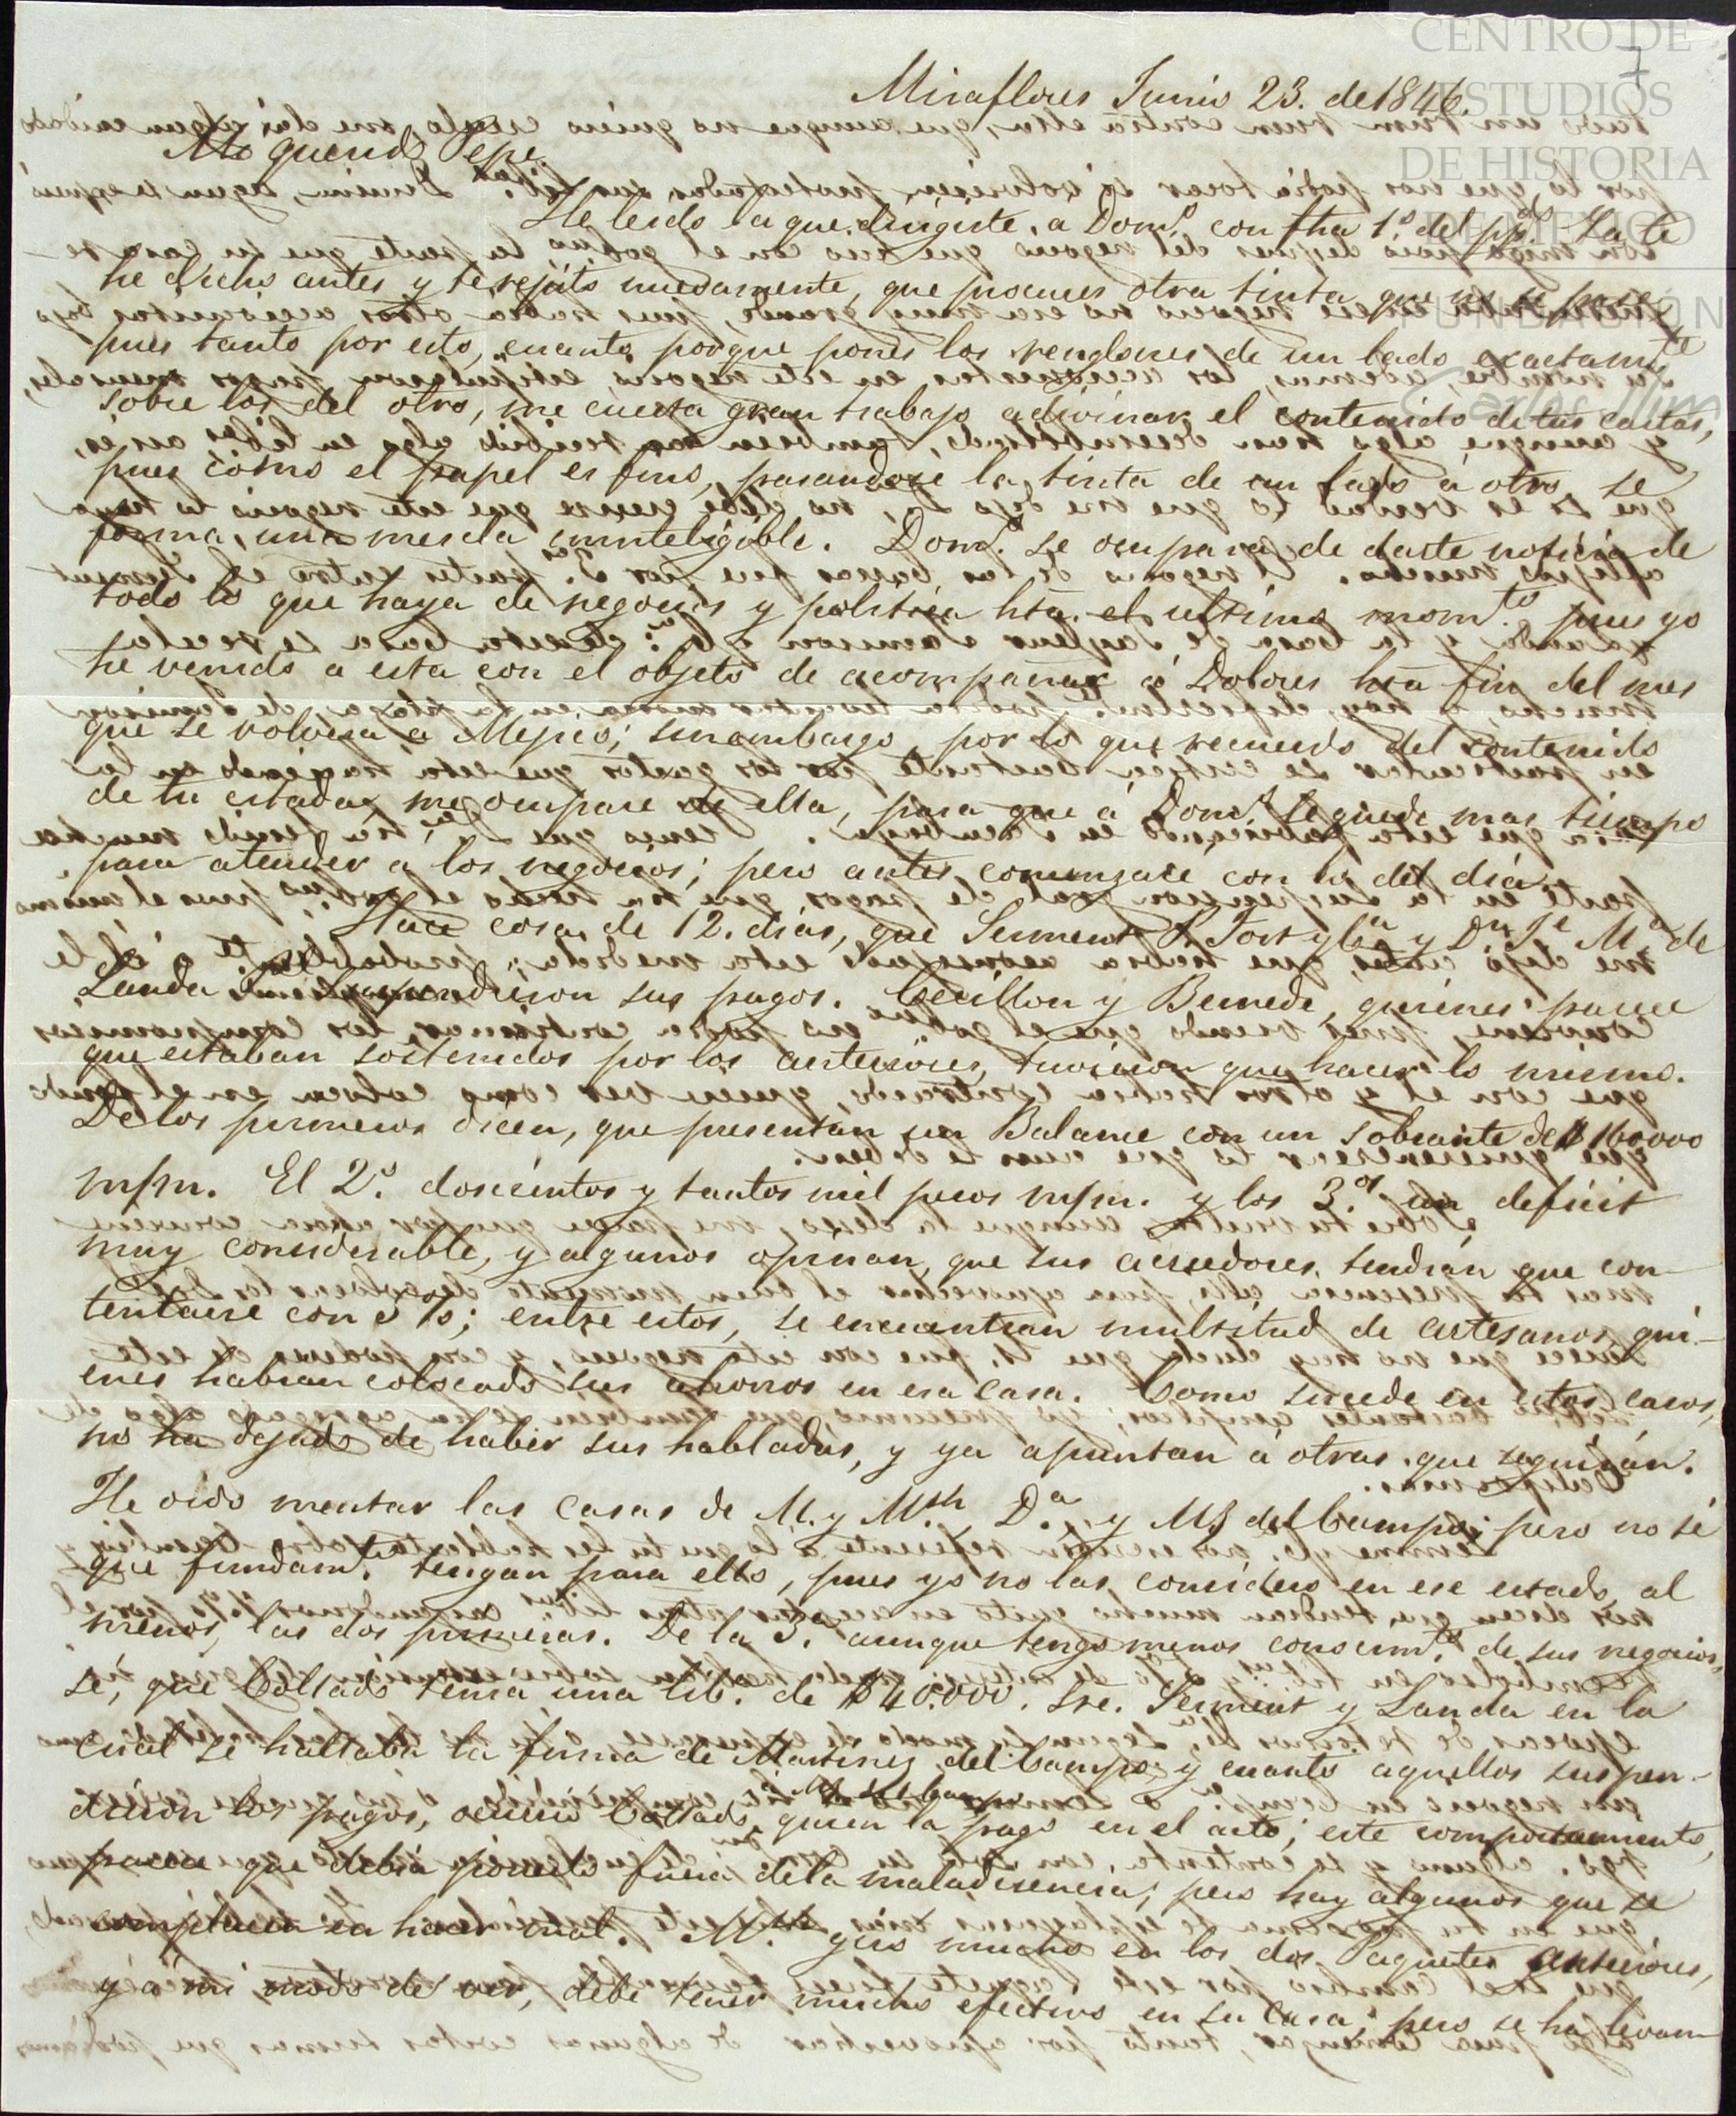 CENTRO DE
ESTUDIOS
DE HISTORIA
DE MEXICO
FUNDACIÓN
Carlos Slim
7
Miraflores Junio 23. de 1846.
Mi querido Pepe
He leido la que dirigiste, a Dom.º con fha 1.º del ppdº. Ya te
he dicho antes y te repito nuevamente, que procures otra tinta que no se pase
pues tanto por esto, cuanto porque pones los renglones de un lado exactam.te
sobre los del otro, me cuesta gran trabajo adivinar el contenido de tus cartas,
pues como el papel es fino, pasandose la tinta de un lado á otro se
forma, una mescla inintelígible. Dom.º se ocupara de darte noticia de
todo lo que haya de negocios y politica hta. el ultimo mom.to pues yo
he venido a esta con el objeto de acompañar á Dolores hta fin del mes
que se volvera a Mejico; sinembargo, por lo que recuerdo del contenido
de tu citada, me ocupare de ella, para que á Dom.º le quede mas tiempo
para atender a los negocios; pero antes comenzaré con lo del dia.
Hace cosa de 12. dias, que Serment P. Fort y Cia y Dn Je Ma de
Landa suspendieron sus pagos. Cecillon y Bernede, quienes parece
que estaban sostenidos por los anteriores, tuvieron que hacer lo mismo.
De los primeros dicen, que presentan un Balance con un sobrante de $ 160000
m/m. El 2.º doscientos y tantos mil pesos m/m. y los 3.os un deficit
muy considerable, y algunos opinan, que sus acreedores tendrán que con-
tentarse con 5 %; entre estos, se encuentran multitud de artesanos, qui-
enes habian colocado sus ahorros en esa casa. Como sucede en estos casos,
no ha dejado de haber sus habladas, y ya apuntan á otras que seguirán.
He oido mentar las casas de M. y M.sh D.a y Mz del Campo; pero no sé
que fundam.to tengan para ello, pues yo no las considero en ese estado, al
menos, las dos primeras. De la 3.a aunque tengo menos conocim.to de sus negocios,
sé, que Collado tenia una lib. de $ 40.000. sre. Serment y Landa en la
cual se hallaba la firma de Martinez del Campo; y cuanto aquellos suspen-
dieron los pagos, ocurrió Collado á Mz del Campo quien la pagó en el acto; este comportamiento,
parece que debia ponerlo fuera de la maladisencia; pero hay algunos que se
complacen en hacer mal. M.sh giró mucho en los dos Paquetes anteriores,
y á mi modo de ver, debe tener mucho efectivo en su casa; pero se ha levan-